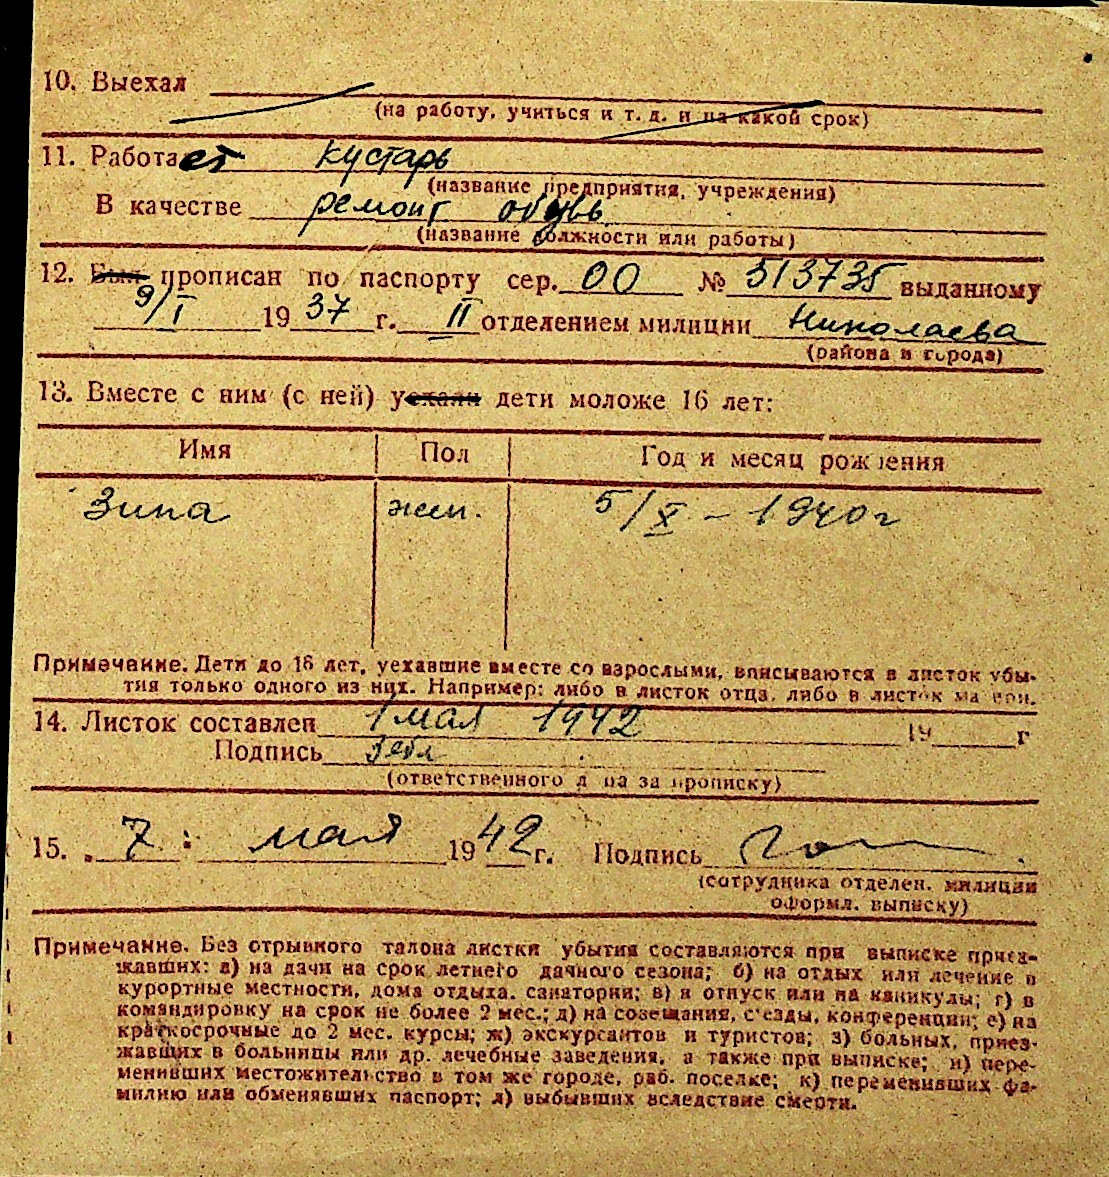 10. Выехал
(на работу, учиться и т. д. и на какой срок)
11. Работает кустарь
(название предприятия, учреждения)
В качестве ремонт обувь
(название должности или работы)
12. Был прописан по паспорту сер. 00 № 513735 выданному
9/I 1937 г. II отделением милиции Николаева
(района и города)
13. Вместе с ним (с ней) уехали дети моложе 16 лет:
Имя Пол Год и месяц рождения
Зина жен. 5/X – 1940 г
Примечание. Дети до 16 лет, уехавшие вместе со взрослыми, вписываются в листок убы-
тия только одного из них. Например: либо в листок отца, либо в листок матери.
14. Листок составлен 1 мая 1942 19 г
Подпись
(ответственного лица за прописку)
15. 7 : мая 1942 г. Подпись
(сотрудника отделен. милиции
оформл. выписку)
Примечание. Без отрывного талона листки убытия составляются при выписке приез-
жавших: а) на дачи на срок летнего дачного сезона; б) на отдых или лечение в
курортные местности, дома отдыха, санатории; в) в отпуск или на каникулы; г) в
командировку на срок не более 2 мес.; д) на совещания, съезды, конференции; е) на
краткосрочные до 2 мес. курсы; ж) экскурсантов и туристов; з) больных, приез-
жавших в больницы или др. лечебные заведения, а также при выписке; и) пере-
менивших местожительство в том же городе, раб. поселке; к) переменивших фа-
милию или обменявших паспорт; л) выбывших вследствие смерти.